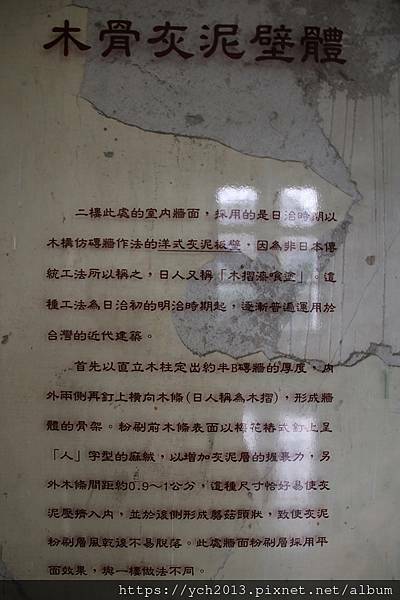 木骨灰泥壁體
二樓此處的室內牆面，採用的是日治時期以
木構仿磚牆作法的洋式灰泥板壁，因為非日本傳
統工法所以稱之，日人又稱「木摺漆喰塗」。這
種工法為日治初的明治時期起，逐漸普遍運用於
台灣的近代建築。
首先以直立木柱定出約半B磚牆的厚度，內
外兩側再釘上橫向木條(日人稱為木摺)，形成牆
體的骨架。粉刷前木條表面以梅花樁式釘上呈
「人」字型的麻絨，以增加灰泥層的握裹力，另
外木條間距約0.9~1公分，這種尺寸恰好易使灰
泥壓擠入內，並於後側形成蘑菇頭狀，致使灰泥
粉刷層風乾後不易脫落。此處牆面粉刷層採用平
面效果，與一樓做法不同。
https://ych2013.pixnet.net/album